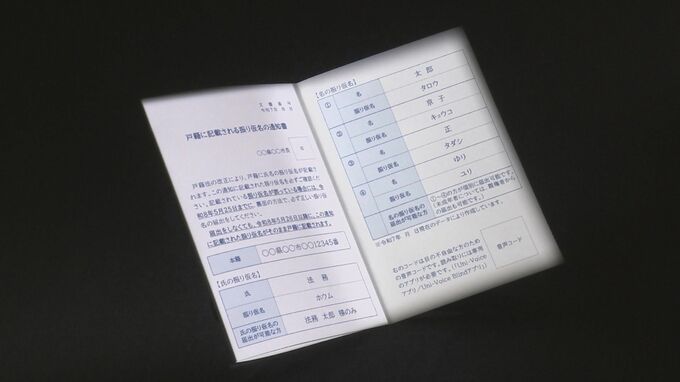 文書番号
令和7年 月 日
戸籍に記載される振り仮名の通知書
〇〇県〇〇市長
戸籍法の改正により、戸籍に氏名の振り仮名が記載さ
れます。この通知に記載された振り仮名を必ずご確認くだ
さい。記載されている振り仮名が誤っている場合には、令
和8年5月25日までに、裏面の方法で、必ず正しい振り仮
名の届出をしてください。
届出をしなくても、令和8年5月26日以降に、この通知
に記載された振り仮名がそのまま戸籍に記載されます。
本籍 〇〇県〇〇市〇〇12345番
【氏の振り仮名】
氏 法務
振り仮名 ホウム
氏の振り仮名の届出が可能な方 法務 太郎 様のみ
【名の振り仮名】
① 名 太郎
振り仮名 タロウ
② 名 京子
振り仮名 キョウコ
③ 名 正
振り仮名 タダシ
④ 名 ゆり
振り仮名 ユリ
名の振り仮名の届出が可能な方 ①~④の方が個別に届出可能です。
(未成年者については、親権者から
の届出も可能です。)
※令和7年 月 日現在のデータにより作成しています。
右のコードは目の不自由な方のため
の音声コードです。読み取りには専用
のアプリが必要です。(「Uni-Voice
アプリ/Uni-Voice Blindアプリ」)
音声コード